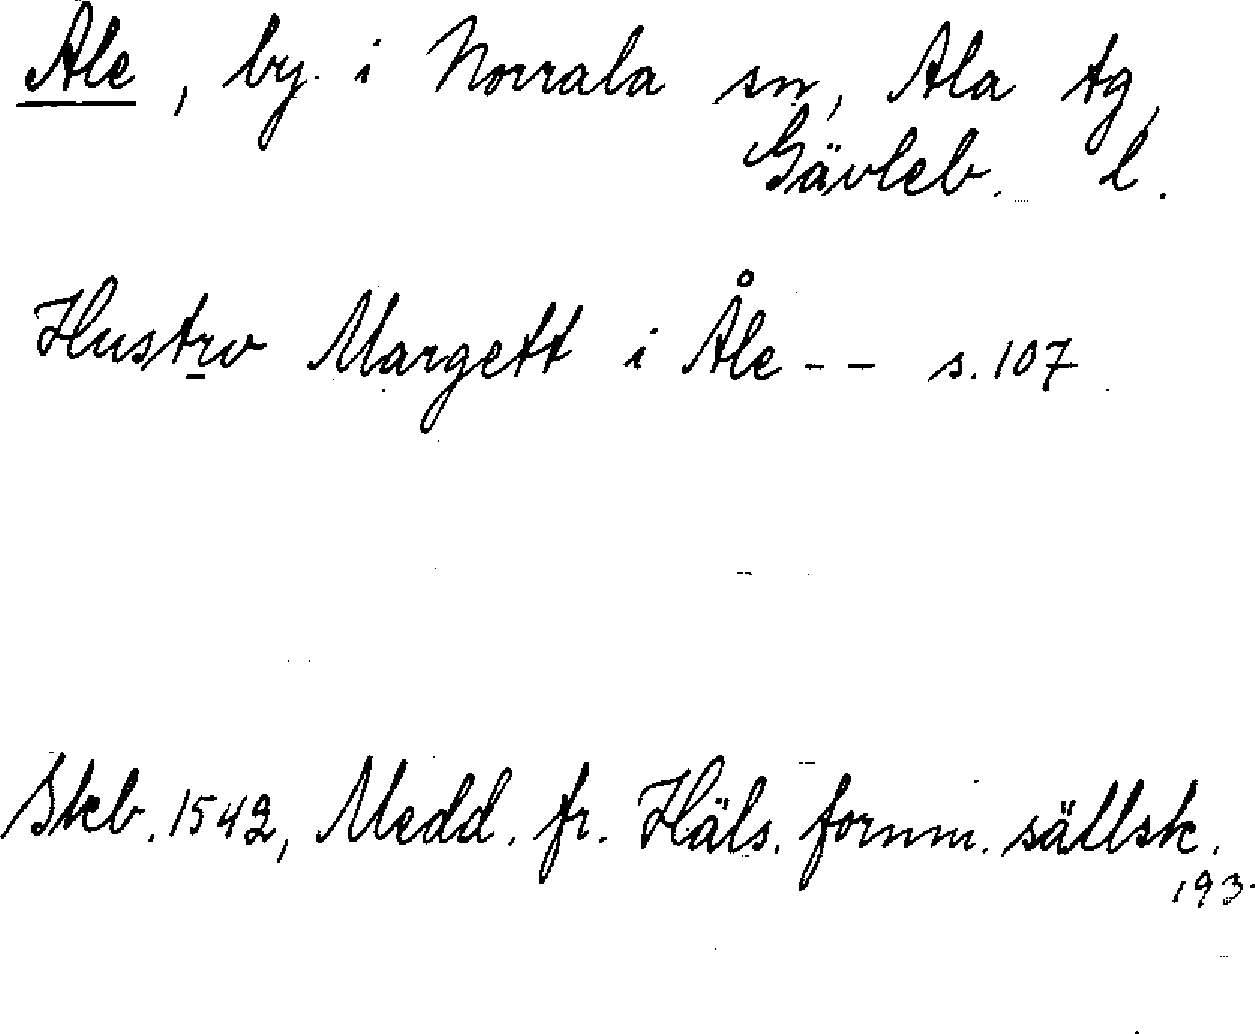 Ale, by i Norrala sn, Ala tg,
Gävleb. l.
Hustrv Margett i Åle - - s. 107
Skb. 1542, Medd. fr. Häls. fornm. sällsk.
193